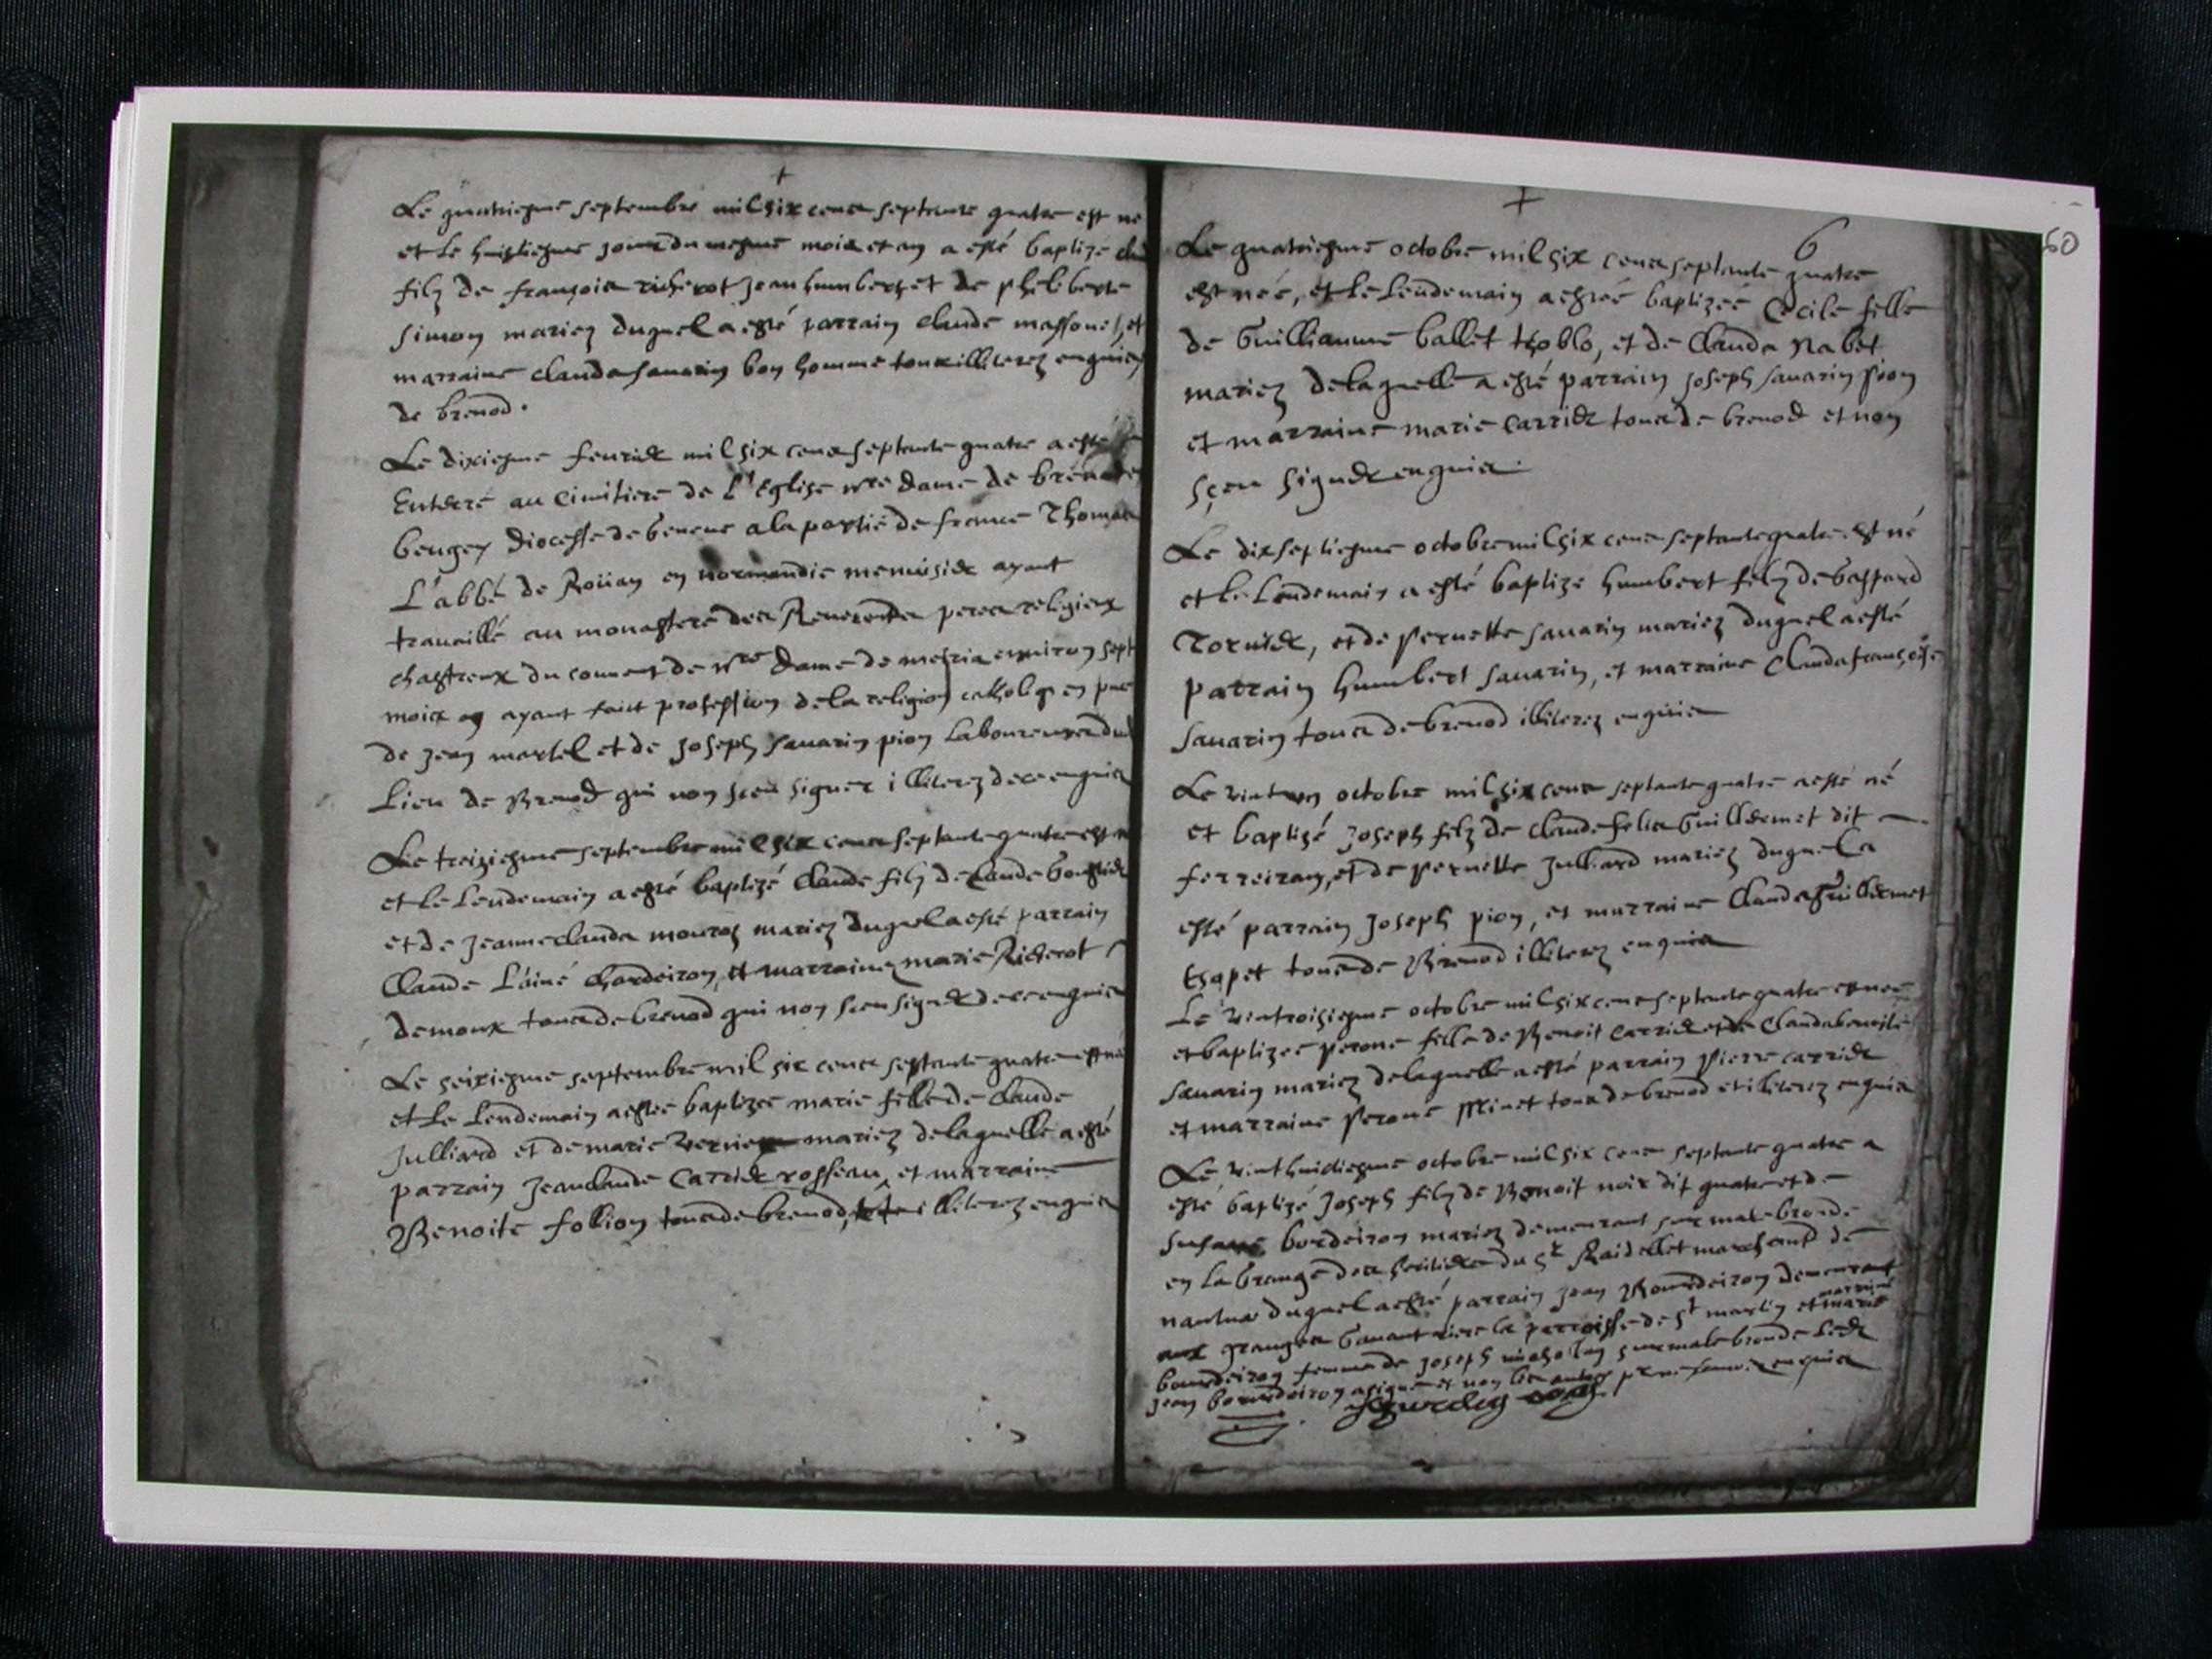 Le quatriesme septembre mil six cens septante quatre est né
et le huistiesme jour du mesme mois et an a esté baptizé
filz de françois richerot jean humbert et de pheliberte
Simon mariez duquel a esté parrain Claude massonet et
marraine clauda savarin bon homme tous illiterez enquis
de brenod.
Le dixiesme feurier mil six cens septante quatre a esté
Enterré au cimitiere de l'Eglise nre dame de brenod en
beugey diocesse de geneve a la partie de france Thomas
L'abbé de Roüan en normandie menuisier ayant
travaillé au monastere des Reverends peres religieux
chastreux du couvent de nre dame de meria environ sept
mois ayant faict profession de la religion catholiq en
de jean martel et de joseph savarin pion laboureurs du
Lieu de Brenod qui non sceu signer illiterez de ce enquis
Le treiziesme septembre mil six cens septante quatre est né
et le lendemain a esté baptizé Claude filz de Claude
et de jeanne clauda mouroz mariez duquel a esté parrain
Claude L'ainé Chardeiron, et marraine marie Richerot
demoux tous de brenod qui non sceu signer de ce enquis
Le seiziesme septembre mil six cens septante quatre est née
et le lendemain a estée baptizée marie fille de Claude
Julliard et de marie mariez de laquelle a esté
parrain jean claude Carrier rosseau, et marraine
Benoite follion tous de brenod, illiterez enquis
6
60
Le quatriesme octobre mil six cens septante quatre
est née, et le lendemain a estéé baptizéé Cecile fille
de Guilliaume ballet, et de Clauda nabet
mariez de laquelle a esté parrain joseph savarin pion
et marraine marie carrier tous de brenod et non
sçeu signer enquis.
Le dix septiesme octobre mil six cens septante quatre est né
et le lendemain a esté baptizé humbert filz de gaspard
Tornier, et de pernette savarin mariez duquel a esté
parrain humbert savarin, et marraine Clauda françoise
savarin tous de brenod illiterez enquis
Le vint un octobre mil six cens septante quatre a esté né
et baptizé joseph filz de claude felix Guillermet dit
ferreiran, et de pernette Julliard mariez duquel a
esté parrain joseph pion, et marraine Clauda Guillermet
tous de Brenod illiterez enquis
Le vintroisiesme octobre mil six cens septante quatre est née
et baptizee perone fille de Benoit carrier et de Clauda benoite
savarin mariez de laquelle a esté parrain pierre carrier
et marraine perone tous de brenod et illiterez enquis
Le vint huictiesme octobre mil six cens septante quatre a
esté baptizé joseph filz de Benoit noir dit quatre et de
susane bordeiron mariez demeurant sur malebronde
en la grange des heritiers du Sr marchand de
nantua duquel a esté parrain jean Bourdeiron demeurant
aux granges la parroisse de St martin et marraine marie
bourdeiron femme de joseph sur malebronde ledt
jean bourdeiron a signé et non les autres enquis